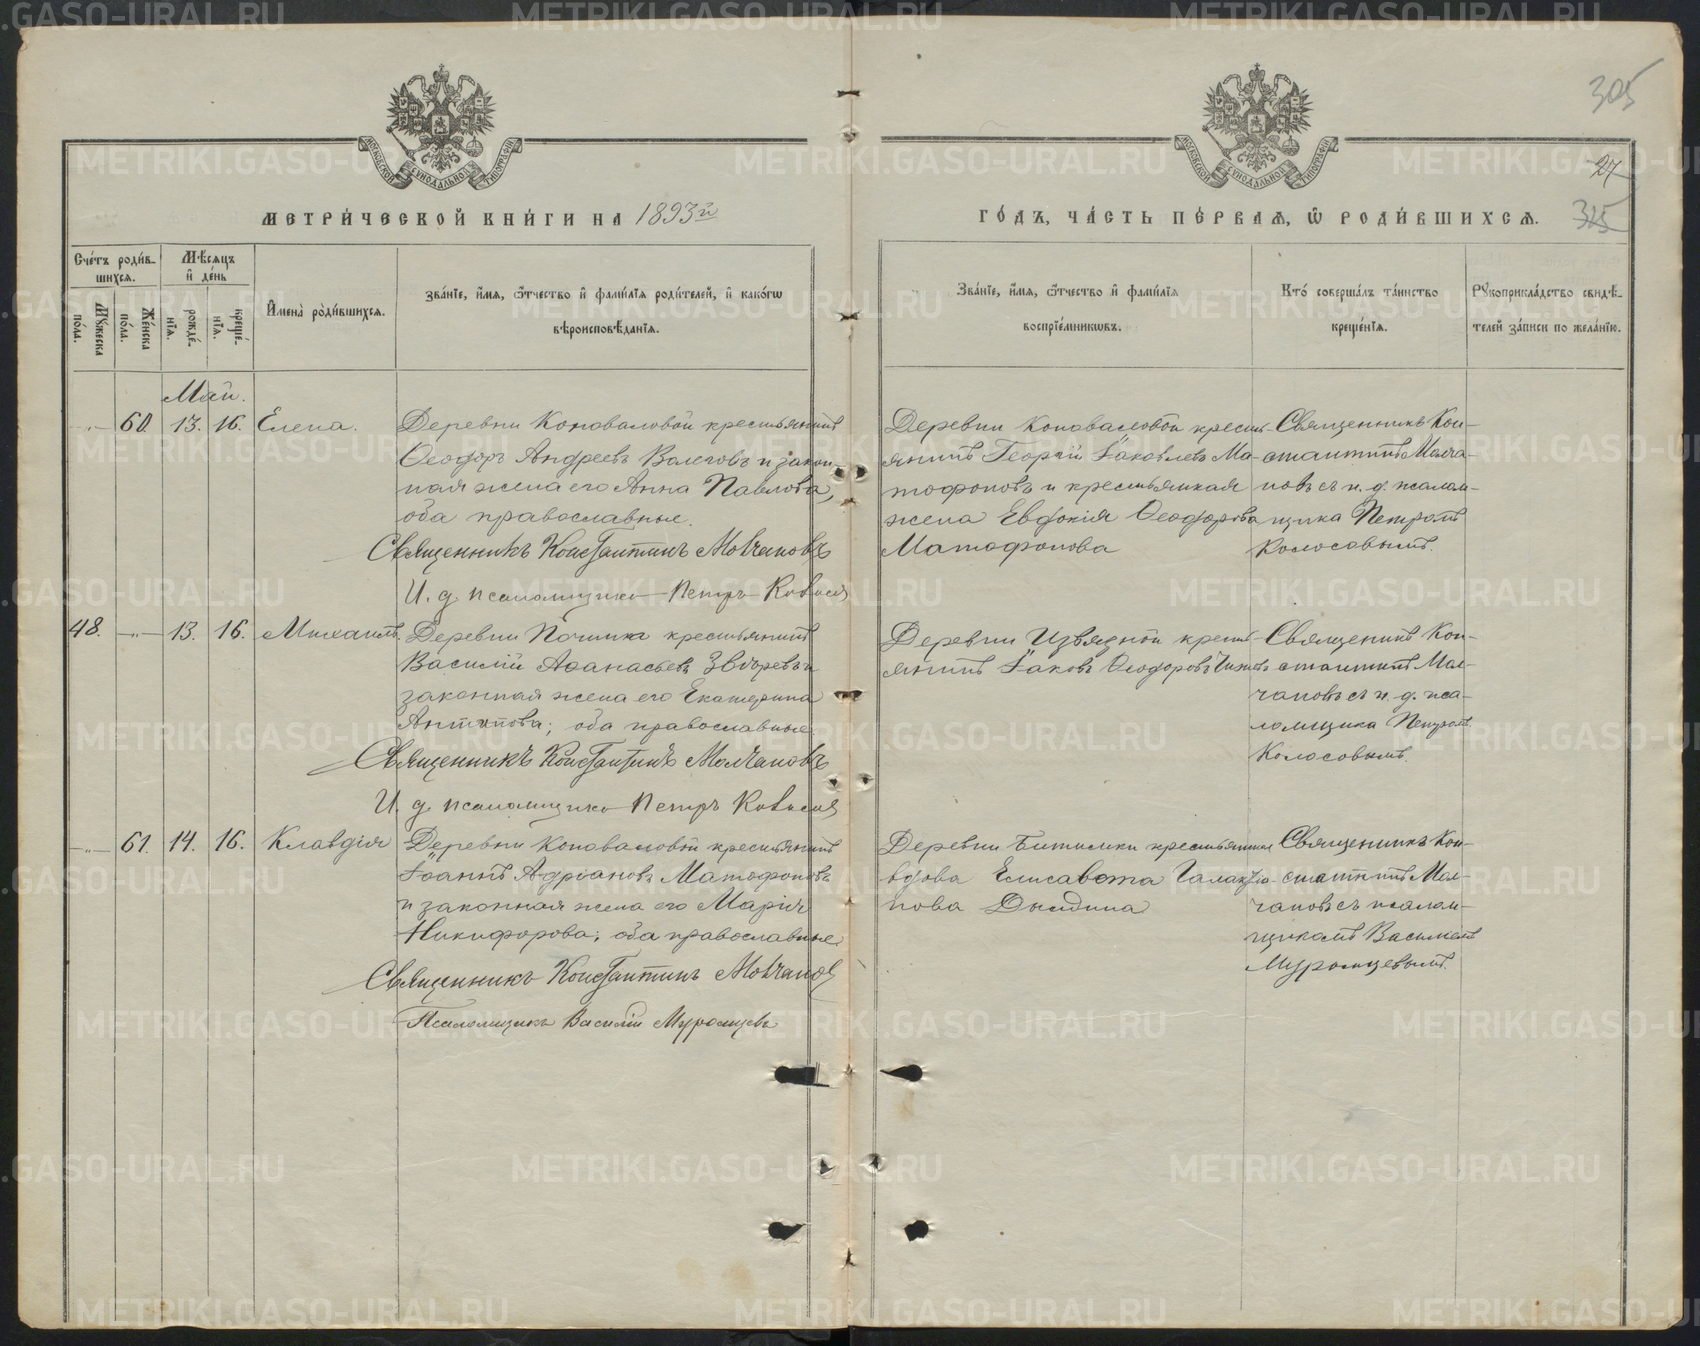 305
27
325
МОСКОВСКОЙ СѴНОДАЛЬНОЙ ТИПОГРАФІИ
МОСКОВСКОЙ СѴНОДАЛЬНОЙ ТИПОГРАФІИ
МЕТРИ́ЧЕСКОЙ КНИ́ГИ НА 1893й
ГО́ДЪ, ЧА́СТЬ ПЕ́РВАѦ, Ѽ РОДИ́ВШИХСѦ.
Сче́тъ роди́в-
шихсѧ.
Мѣ́сѧцъ
и҆ де́нь
Мꙋ́жеска
по́ла.
Же́нска
по́ла.
рожде́-
нїѧ.
креще́-
нїѧ.
И҆мена̀ роди́вшихсѧ.
Зва́нїе, и҆́мѧ, ѻ҆́тчество и҆ фами́лїѧ роди́телей, и҆ како́гѡ
вѣроисповѣ́данїѧ.
Зва́нїе, и҆́мѧ, ѻ҆́тчество и҆ фами́лїѧ
воспрїе́мникѡвъ.
Кто̀ соверша́лъ та́инство
креще́нїѧ.
Рꙋкоприкла́дство свидѣ́-
телей за́писи по жела́нїю.
Май.
-„- 60. 13. 16. Елена.
Деревни Коноваловой крестьянинъ
Ѳеодоръ Андреевъ Волеговъ и закон-
ная жена его Анна Павлова,
оба православные.
Священникъ Константинъ Молчановъ
И. д. псаломщика Петръ Колосовъ
Деревни Коноваловой кресть-
янинъ Георгій Іаковлевъ Ма-
тофоновъ и крестьянская
жена Евдокія Ѳеодорова
Матофонова
Священникъ Кон-
стантинъ Молча-
новъ съ и. д. псалом-
щика Петромъ
Колосовымъ.
48. -„- 13. 16. Михаилъ.
Деревни Починка крестьянинъ
Василій Аѳанасьевъ Звѣревъ и
законная жена его Екатерина
Антипова; оба православные
Священникъ Константинъ Молчановъ
И. д. псаломщика Петръ Колосовъ
Деревни Извѣдной кресть-
янинъ Іаковъ Ѳеодоровъ
Священникъ Кон-
стантинъ Мол-
чановъ съ и. д. пса-
ломщика Петромъ
Колосовымъ.
-„- 61. 14. 16. Клавдія
Деревни Коноваловой крестьянинъ
Іоаннъ Адріановъ Матофоновъ
и законная жена его Марія
Никифорова; оба православные.
Священникъ Константинъ Молчановъ
Псаломщикъ Василій Муромцевъ
Деревни Битимки крестьянская
вдова Елисавета Галактіо-
нова Дылдина
Священникъ Кон-
стантинъ Мол-
чановъ съ псалом-
щикомъ Василіемъ
Муромцевымъ.